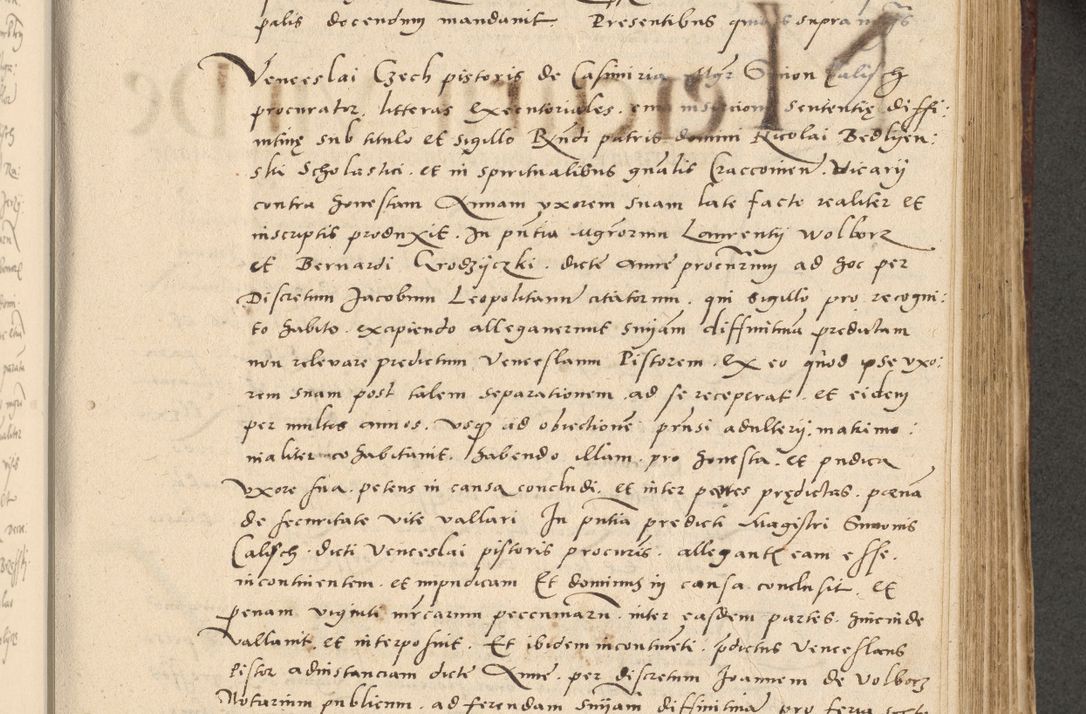 palis decendum mandauit. Presentibus quibus supra
Venceslai Czech pistoris de Casimiria Mgr Simon Calisch
procurator, litteras executoriales sententię diffi:
nitiuę sub titulo et sigillo Rndi patris domini Nicolai Bedlyen:
ski Scholastici, et in spiritualibus gnalis Craccouien. Vicarij
contra honestam Annam vxorem suam late facte realiter et
inscriptis produxit. In pntia Mgrorum Laurentij Wolborz
et Bernardi Grodzyczki. dicte Anne procurrum ad hoc per
Discretum Jacobum Leopolitanum citatorum, qui sigillo pro recogni:
to habito, excipiendo allegauerunt sniam diffinitiua predictam
non releuare predictum Venceslaum Pistorem. Ex eo quod ipse vxo:
rem suam post talem separationem, ad se receperat, et eidem
per multos annos, vsque ad obiectione prnsi adulterij, matrimo:
nialiter cohabitauit, habendo illam, pro honesta, et pudica
vxore sua, petens in causa concludi, et inter partes prędictas, poena
de securitate vite vallari In pntia predicti Magistri Simonis
Calisch, dicti Venceslai pistoris procuris, allegantis eam esse,
incontinentem, et impudicam Et dominus in causa conclusit, et
penam viginti mrcarum pecuniaru, inter easdem partes, hincinde
vallauit et interposuit. Et ibidem incontineti, pdictus Venceslaus
Pistor adinstanciam dicte Anne, per discretum Joannem de Volborz
Notarium publicum, ad ferendam sniam diffinitiua pro feria